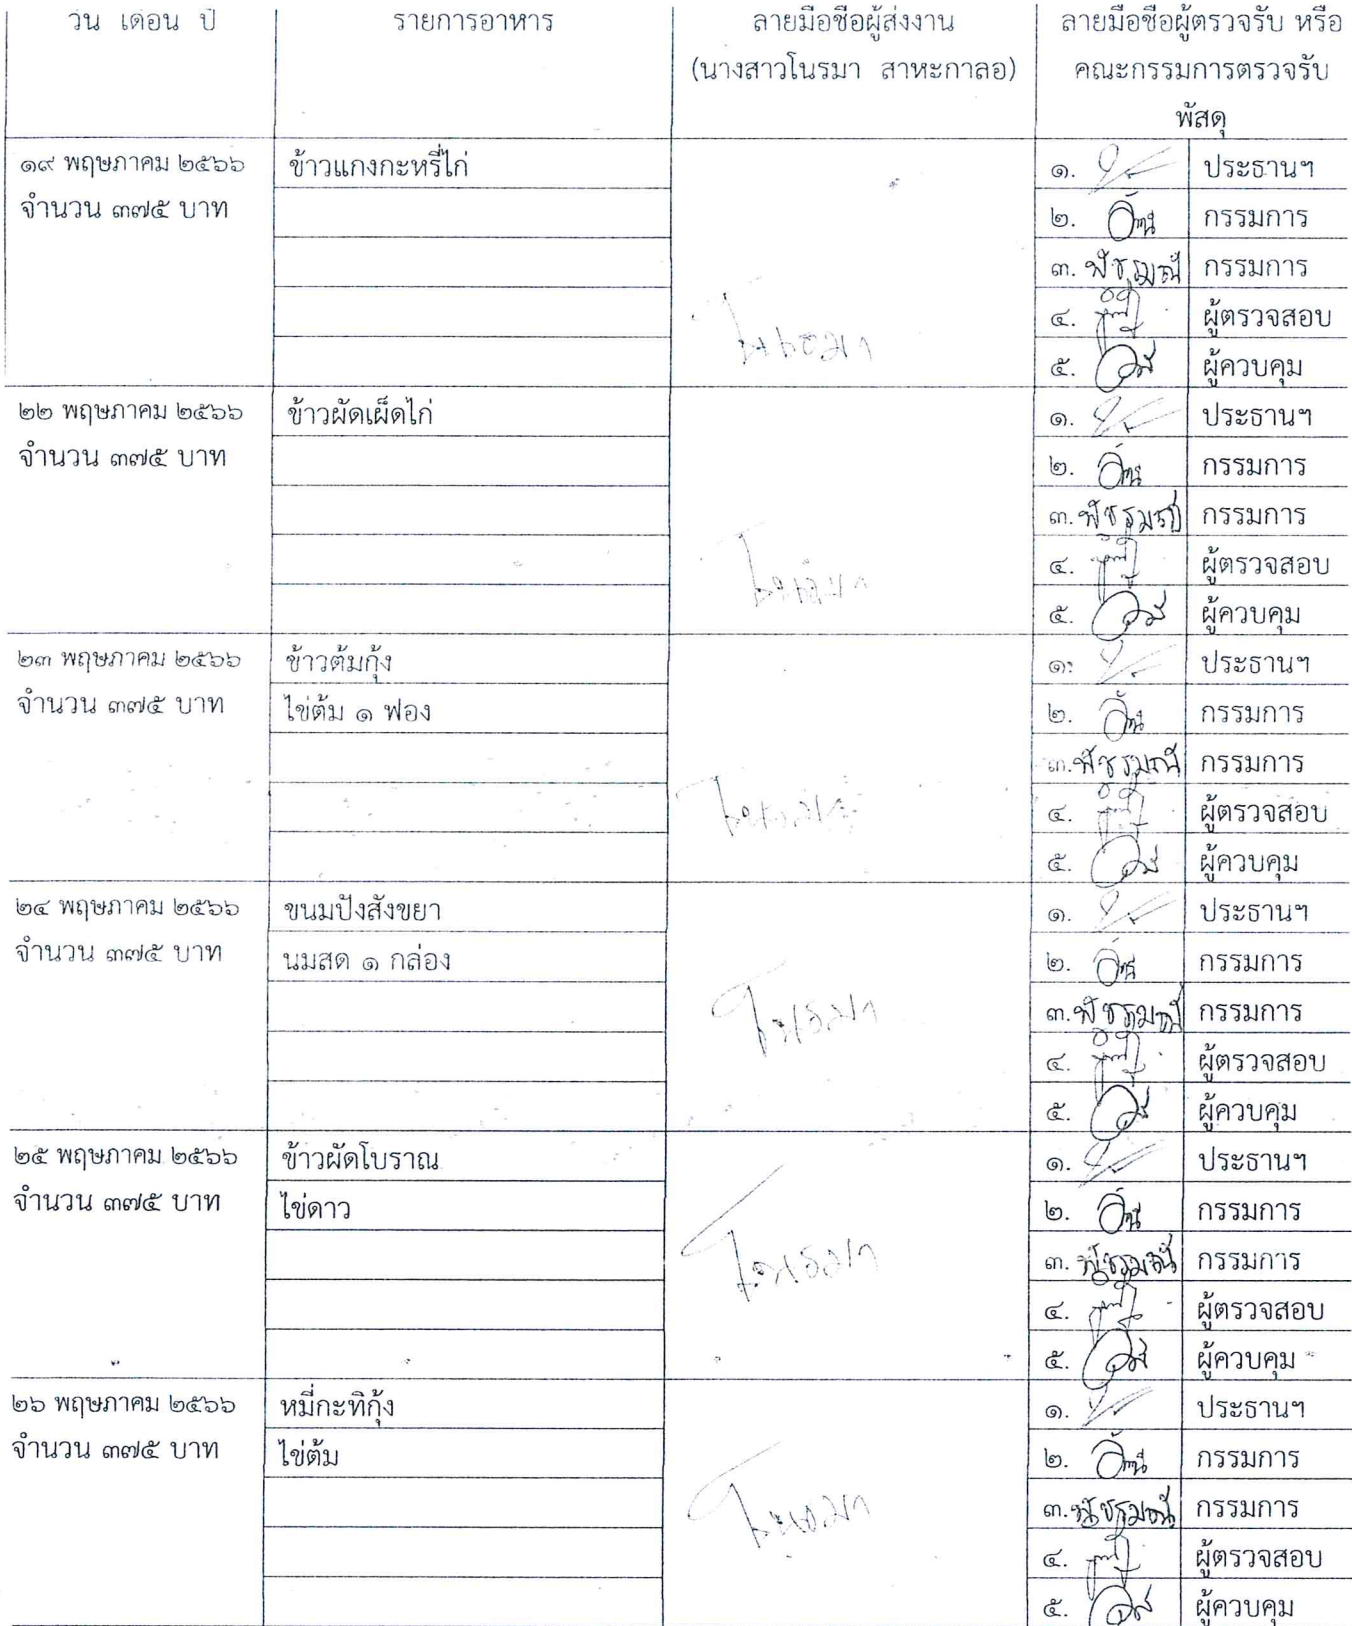 วัน เดือน ปี
รายการอาหาร
ลายมือชื่อผู้ส่งงาน
(นางสาวโนรมา สาหะกาลอ)
ลายมือชื่อผู้ตรวจรับ หรือ
คณะกรรมการตรวจรับ
พัสดุ
๑๙ พฤษภาคม ๒๕๖๖
จำนวน ๓๗๕ บาท
ข้าวแกงกะหรี่ไก่
โนรมา
๑. ประธานฯ
๒. กรรมการ
๓. พัชรมณี กรรมการ
๔. ผู้ตรวจสอบ
๕. ผู้ควบคุม
๒๒ พฤษภาคม ๒๕๖๖
จำนวน ๓๗๕ บาท
ข้าวผัดเผ็ดไก่
โนรมา
๑. ประธานฯ
๒. กรรมการ
๓. พัชรมณี กรรมการ
๔. ผู้ตรวจสอบ
๕. ผู้ควบคุม
๒๓ พฤษภาคม ๒๕๖๖
จำนวน ๓๗๕ บาท
ข้าวต้มกุ้ง
ไข่ต้ม ๑ ฟอง
โนรมา
๑. ประธานฯ
๒. กรรมการ
๓. พัชรมณี กรรมการ
๔. ผู้ตรวจสอบ
๕. ผู้ควบคุม
๒๔ พฤษภาคม ๒๕๖๖
จำนวน ๓๗๕ บาท
ขนมปังสังขยา
นมสด ๑ กล่อง
โนรมา
๑. ประธานฯ
๒. กรรมการ
๓. พัชรมณี กรรมการ
๔. ผู้ตรวจสอบ
๕. ผู้ควบคุม
๒๕ พฤษภาคม ๒๕๖๖
จำนวน ๓๗๕ บาท
ข้าวผัดโบราณ
ไข่ดาว
โนรมา
๑. ประธานฯ
๒. กรรมการ
๓. พัชรมณี กรรมการ
๔. ผู้ตรวจสอบ
๕. ผู้ควบคุม
๒๖ พฤษภาคม ๒๕๖๖
จำนวน ๓๗๕ บาท
หมี่กะทิกุ้ง
ไข่ต้ม
โนรมา
๑. ประธานฯ
๒. กรรมการ
๓. พัชรมณี กรรมการ
๔. ผู้ตรวจสอบ
๕. ผู้ควบคุม